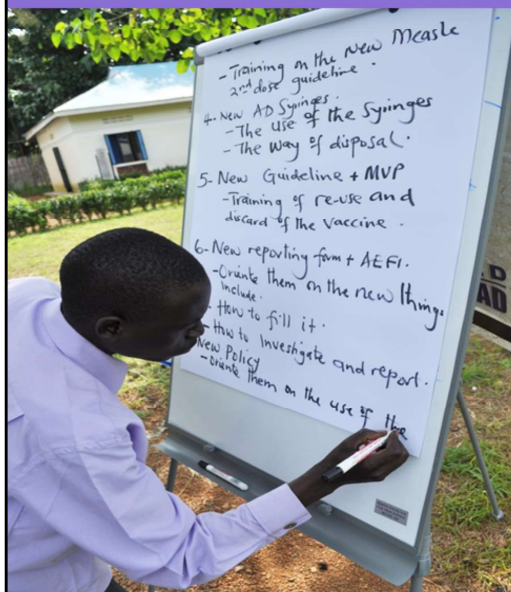 - Training on the New Measle
2nd dose guideline.
4- New AD Syringes.
- The use of the Syringes
- The way of disposal.
5- New Guideline + MVP
- Training of re-use and
discard of the vaccine.
6- New reporting form + AEFI.
- Oriente them on the new things
include.
- How to fill it.
- How to Investigate and report.
New Policy
- oriente them on the use of the
D
AD